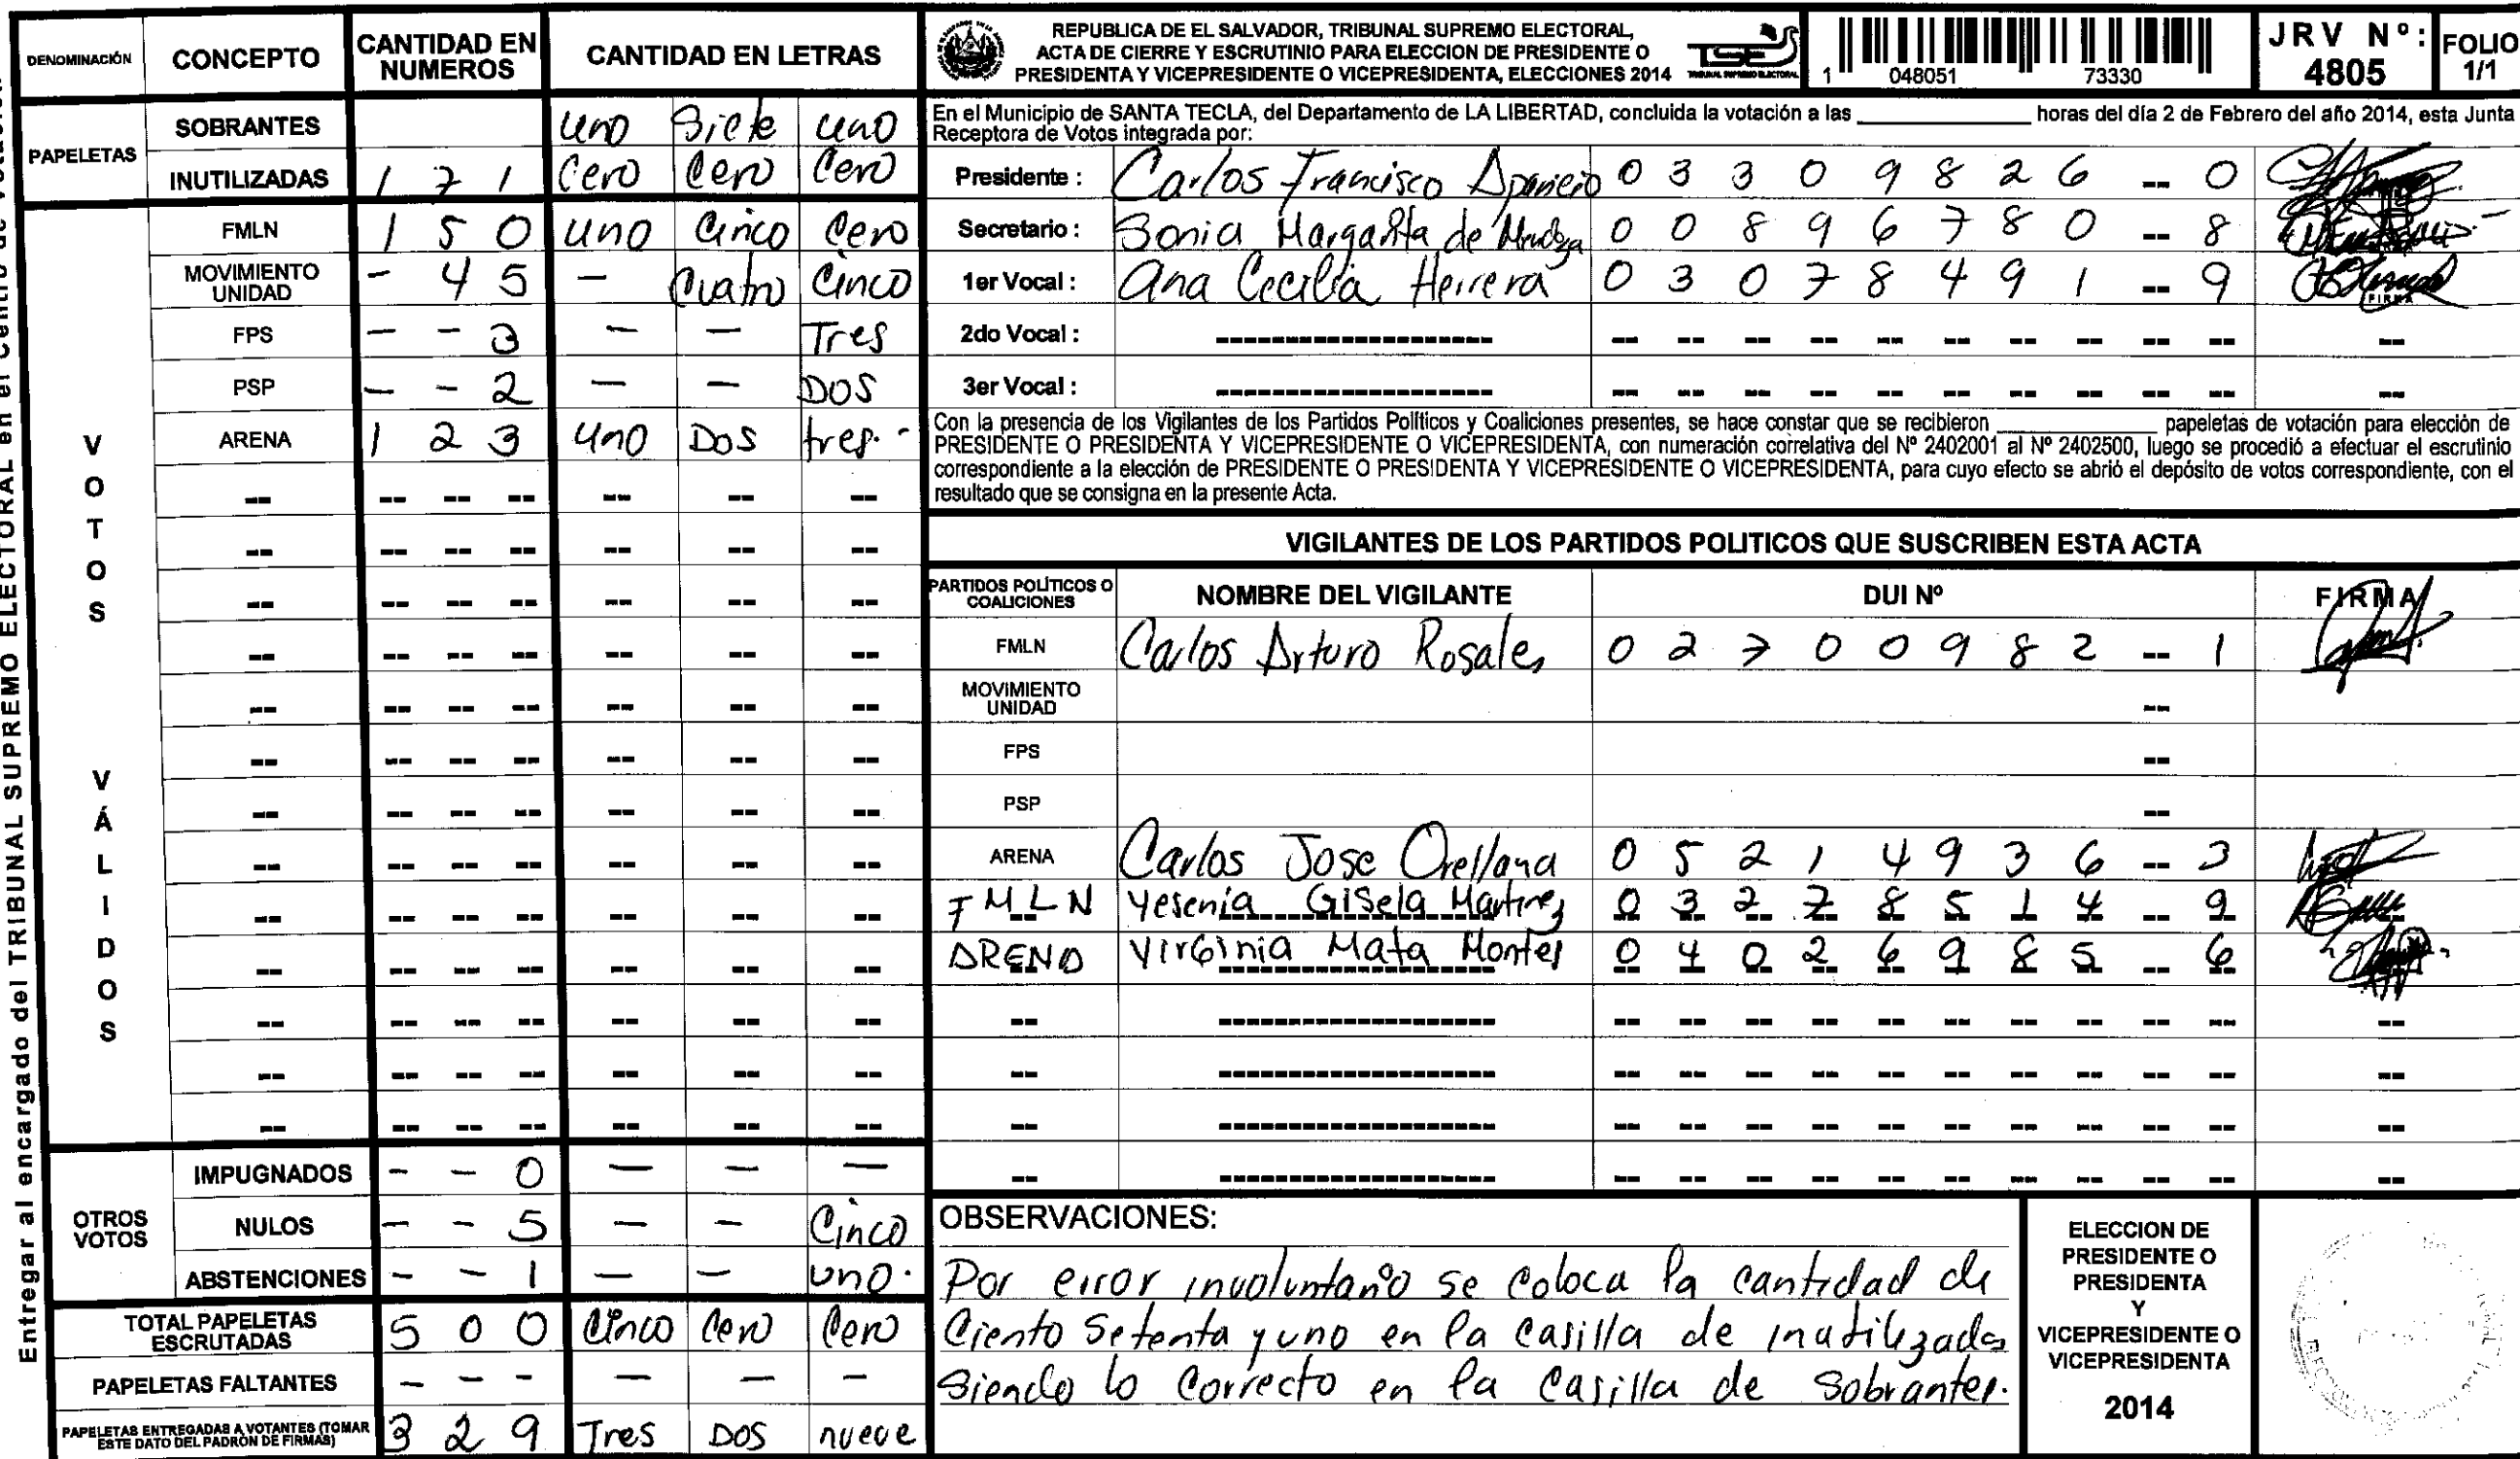 Entregar al encargado del TRIBUNAL SUPREMO ELECTORAL en el Centro de Votación
DENOMINACIÓN CONCEPTO CANTIDAD EN NUMEROS CANTIDAD EN LETRAS
PAPELETAS SOBRANTES uno Siete uno
INUTILIZADAS 1 7 1 Cero Cero Cero
VOTOS VÁLIDOS
FMLN 1 5 0 uno Cinco Cero
MOVIMIENTO UNIDAD - 4 5 - Cuatro Cinco
FPS - - 3 - - Tres
PSP - - 2 - - DOS
ARENA 1 2 3 uno DOS tres.-
-- -- -- -- -- -- --
-- -- -- -- -- -- --
-- -- -- -- -- -- --
-- -- -- -- -- -- --
-- -- -- -- -- -- --
-- -- -- -- -- -- --
-- -- -- -- -- -- --
-- -- -- -- -- -- --
-- -- -- -- -- -- --
-- -- -- -- -- -- --
-- -- -- -- -- -- --
-- -- -- -- -- -- --
-- -- -- -- -- -- --
OTROS VOTOS
IMPUGNADOS - - 0 - - -
NULOS - - 5 - - Cinco
ABSTENCIONES - - 1 - - uno.
TOTAL PAPELETAS ESCRUTADAS 5 0 0 Cinco Cero Cero
PAPELETAS FALTANTES - - - - - -
PAPELETAS ENTREGADAS A VOTANTES (TOMAR ESTE DATO DEL PADRÓN DE FIRMAS) 3 2 9 Tres DOS nueve
REPUBLICA DE EL SALVADOR, TRIBUNAL SUPREMO ELECTORAL,
ACTA DE CIERRE Y ESCRUTINIO PARA ELECCION DE PRESIDENTE O
PRESIDENTA Y VICEPRESIDENTE O VICEPRESIDENTA, ELECCIONES 2014
TSE
TRIBUNAL SUPREMO ELECTORAL
1 048051 73330
JRV Nº: 4805
FOLIO 1/1
En el Municipio de SANTA TECLA, del Departamento de LA LIBERTAD, concluida la votación a las ____ horas del día 2 de Febrero del año 2014, esta Junta
Receptora de Votos integrada por:
Presidente : Carlos Francisco Aparicio 0 3 3 0 9 8 2 6 -- 0
Secretario : Sonia Margarita de Mendoza 0 0 8 9 6 7 8 0 -- 8
1er Vocal : Ana Cecilia Herrera 0 3 0 7 8 4 9 1 -- 9
FIRMA
2do Vocal : -------------------- -- -- -- -- -- -- -- -- -- -- --
3er Vocal : -------------------- -- -- -- -- -- -- -- -- -- -- --
Con la presencia de los Vigilantes de los Partidos Políticos y Coaliciones presentes, se hace constar que se recibieron ____ papeletas de votación para elección de
PRESIDENTE O PRESIDENTA Y VICEPRESIDENTE O VICEPRESIDENTA, con numeración correlativa del Nº 2402001 al Nº 2402500, luego se procedió a efectuar el escrutinio
correspondiente a la elección de PRESIDENTE O PRESIDENTA Y VICEPRESIDENTE O VICEPRESIDENTA, para cuyo efecto se abrió el depósito de votos correspondiente, con el
resultado que se consigna en la presente Acta.
VIGILANTES DE LOS PARTIDOS POLITICOS QUE SUSCRIBEN ESTA ACTA
PARTIDOS POLÍTICOS O COALICIONES NOMBRE DEL VIGILANTE DUI Nº FIRMA
FMLN Carlos Arturo Rosales 0 2 7 0 0 9 8 2 -- 1
MOVIMIENTO UNIDAD --
FPS --
PSP --
ARENA Carlos Jose Orellana 0 5 2 1 4 9 3 6 -- 3
FMLN Yesenia Gisela Martinez 0 3 2 7 8 5 1 4 -- 9
ARENA Virginia Mata Montes 0 4 0 2 6 9 8 5 -- 6
-- -------------------- -- -- -- -- -- -- -- -- -- -- --
-- -------------------- -- -- -- -- -- -- -- -- -- -- --
-- -------------------- -- -- -- -- -- -- -- -- -- -- --
-- -------------------- -- -- -- -- -- -- -- -- -- -- --
OBSERVACIONES:
Por error involuntario se coloca la cantidad de
Ciento Setenta y uno en la casilla de inutilizadas
Siendo lo Correcto en la Casilla de Sobrantes.
ELECCION DE
PRESIDENTE O
PRESIDENTA
Y
VICEPRESIDENTE O
VICEPRESIDENTA
2014